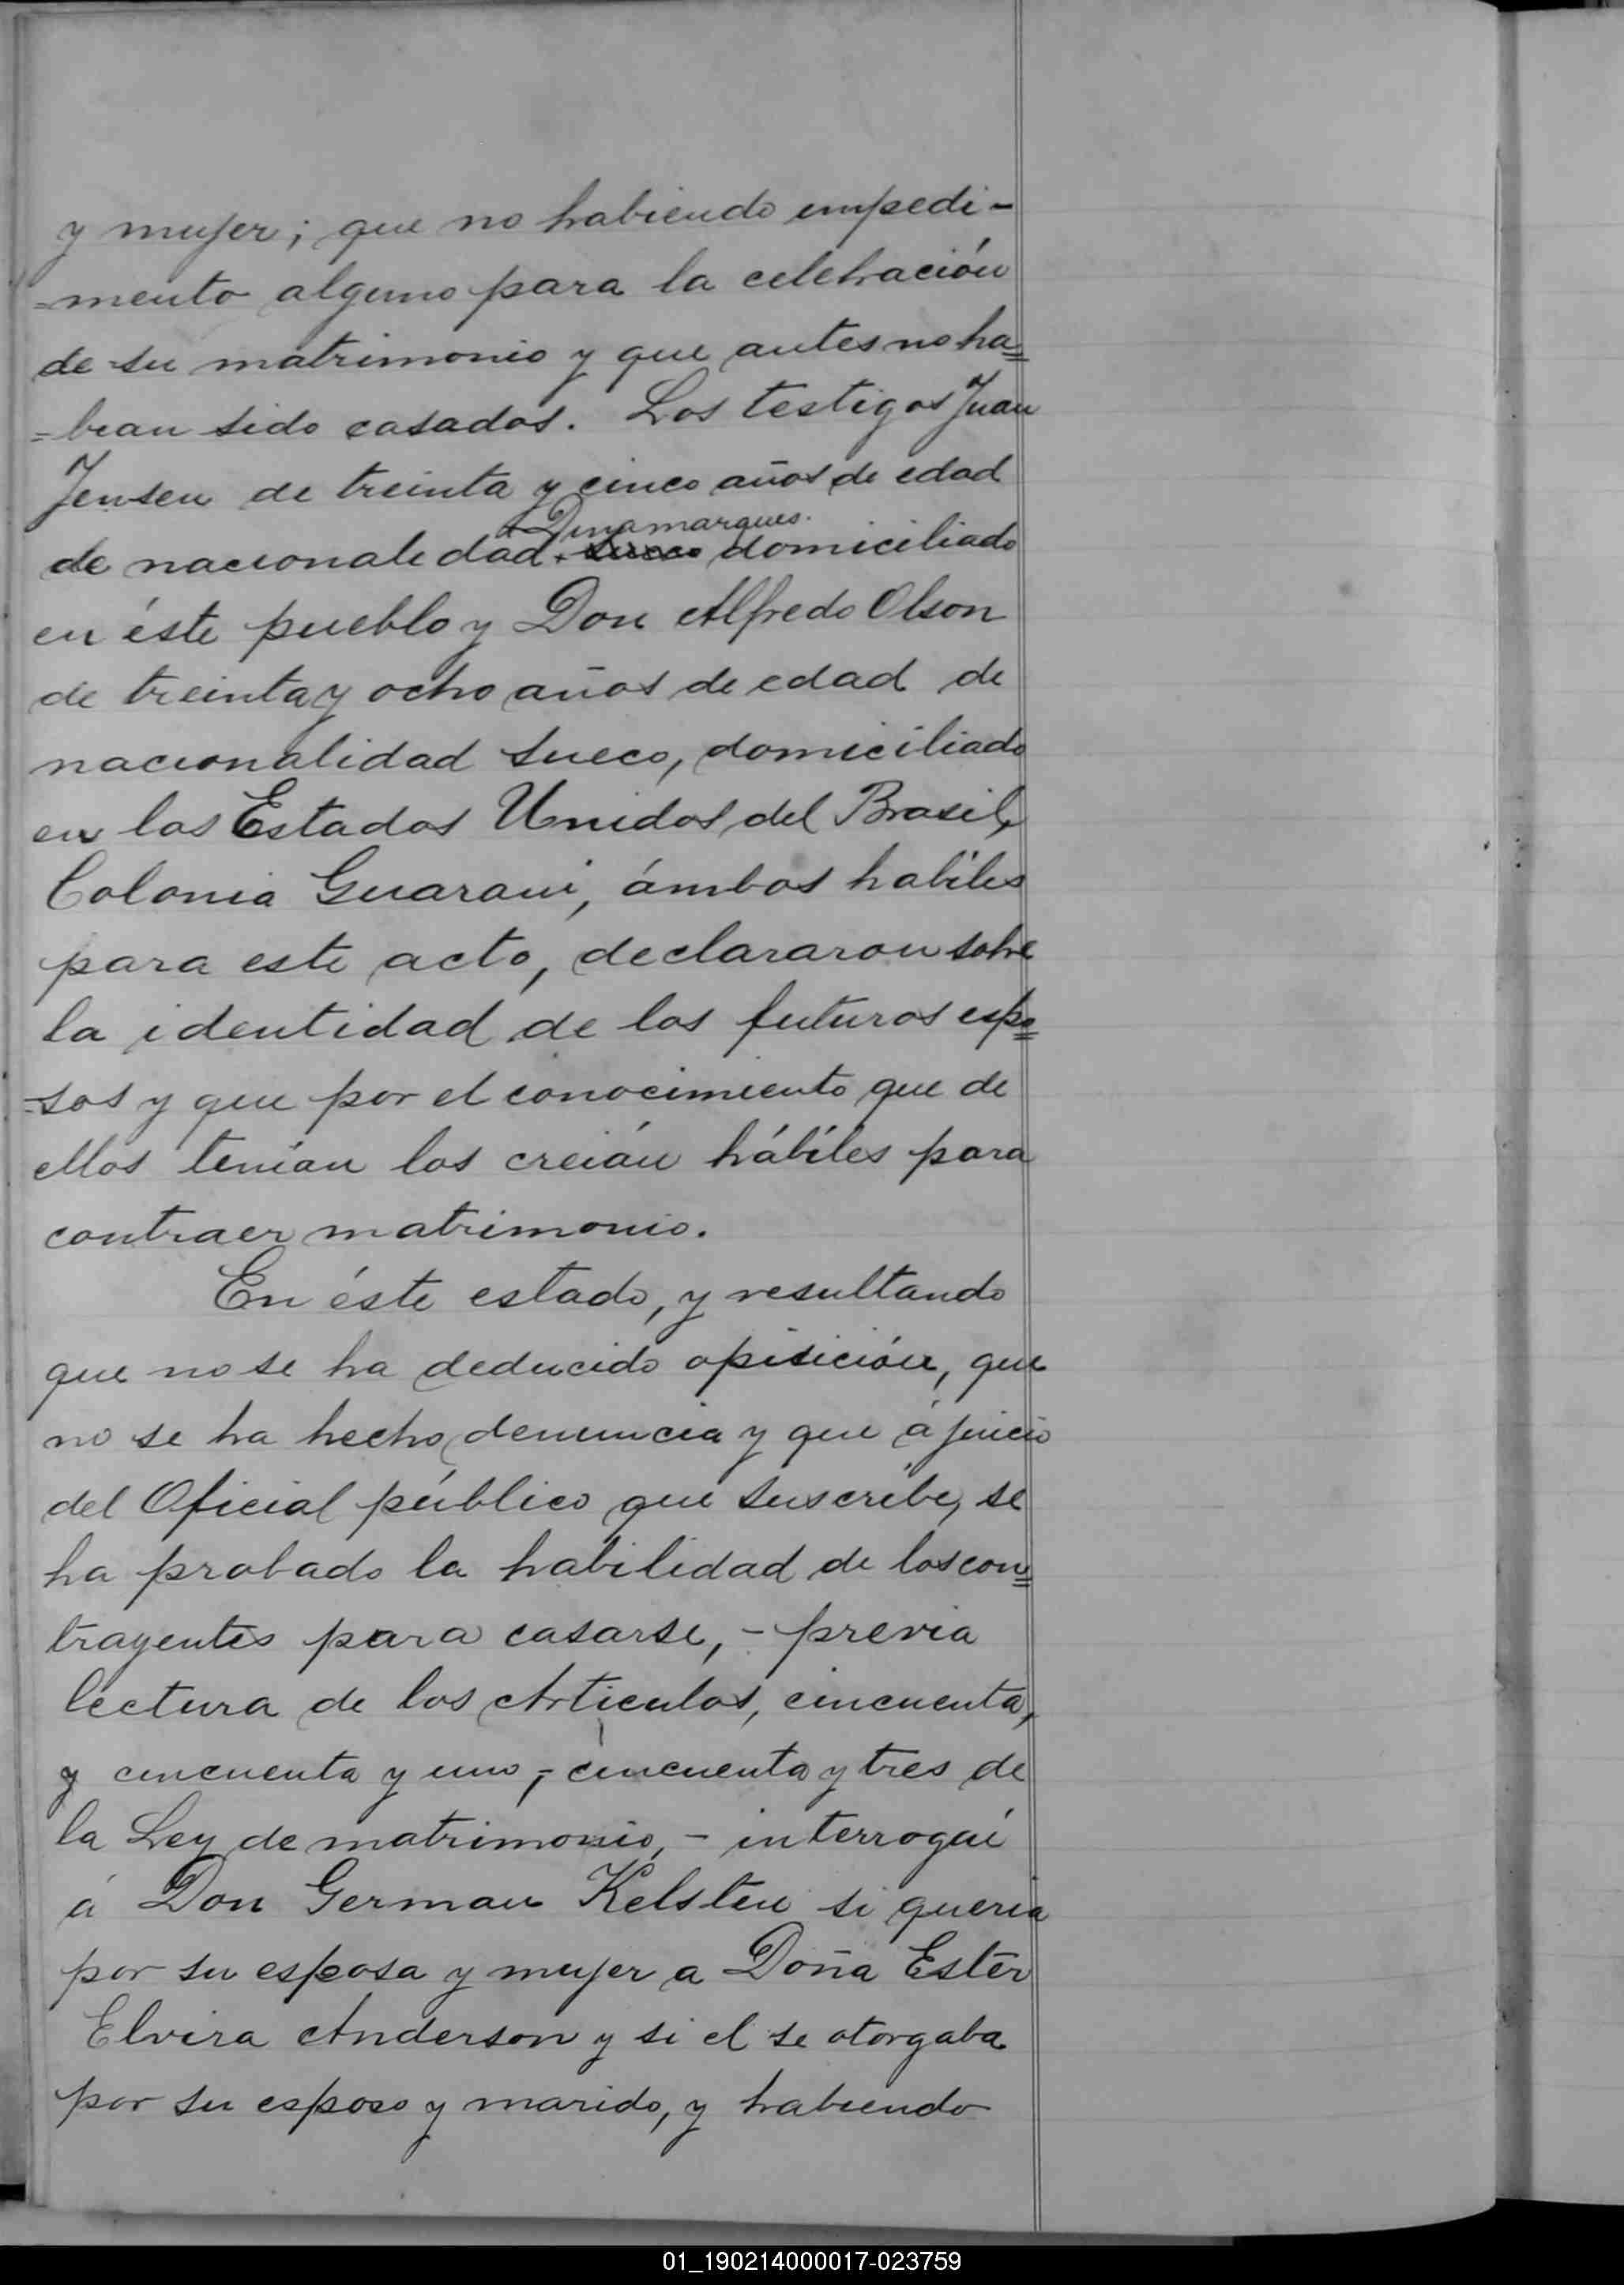 y mujer; que no habiendo empedi-
=mento alguno para la celebración
de su matrimonio y que antes no ha=
=bean sido casados. Los testigos Juan
Jensen de treinta y cinco años de edad
Dinamarques.
de nacionaledad sueco domiciliado
en éste pueblo y Don Alfredo Olson
de treinta y ocho años de edad de
nacionalidad sueco, domiciliado
en los Estados Unidos del Brasil,
Colonia Guarani, ámbos habiles
para este acto, declararon sobre
la identidad de los futuros espo=
=sos y que por el conocimiento que de
ellos tenían los creían hábiles para
contraer matrimonio.
En éste estado, y resultando
que no se ha deducido oposición, que
no se ha hecho denuncia y que á juicio
del Oficial público que suscribe, se
ha probado la habilidad de los con=
trayentes para casarse, - previa
lectura de los Articulos, cincuenta,
y cincuenta y uno, - cincuenta y tres de
la Ley de matrimonio, - interrogué
á Don German Kelsten si queria
por su esposa y mujer a Doña Ester
Elvira Anderson y si el se otorgaba
por su esposo y marido, y habiendo
01_190214000017-023759